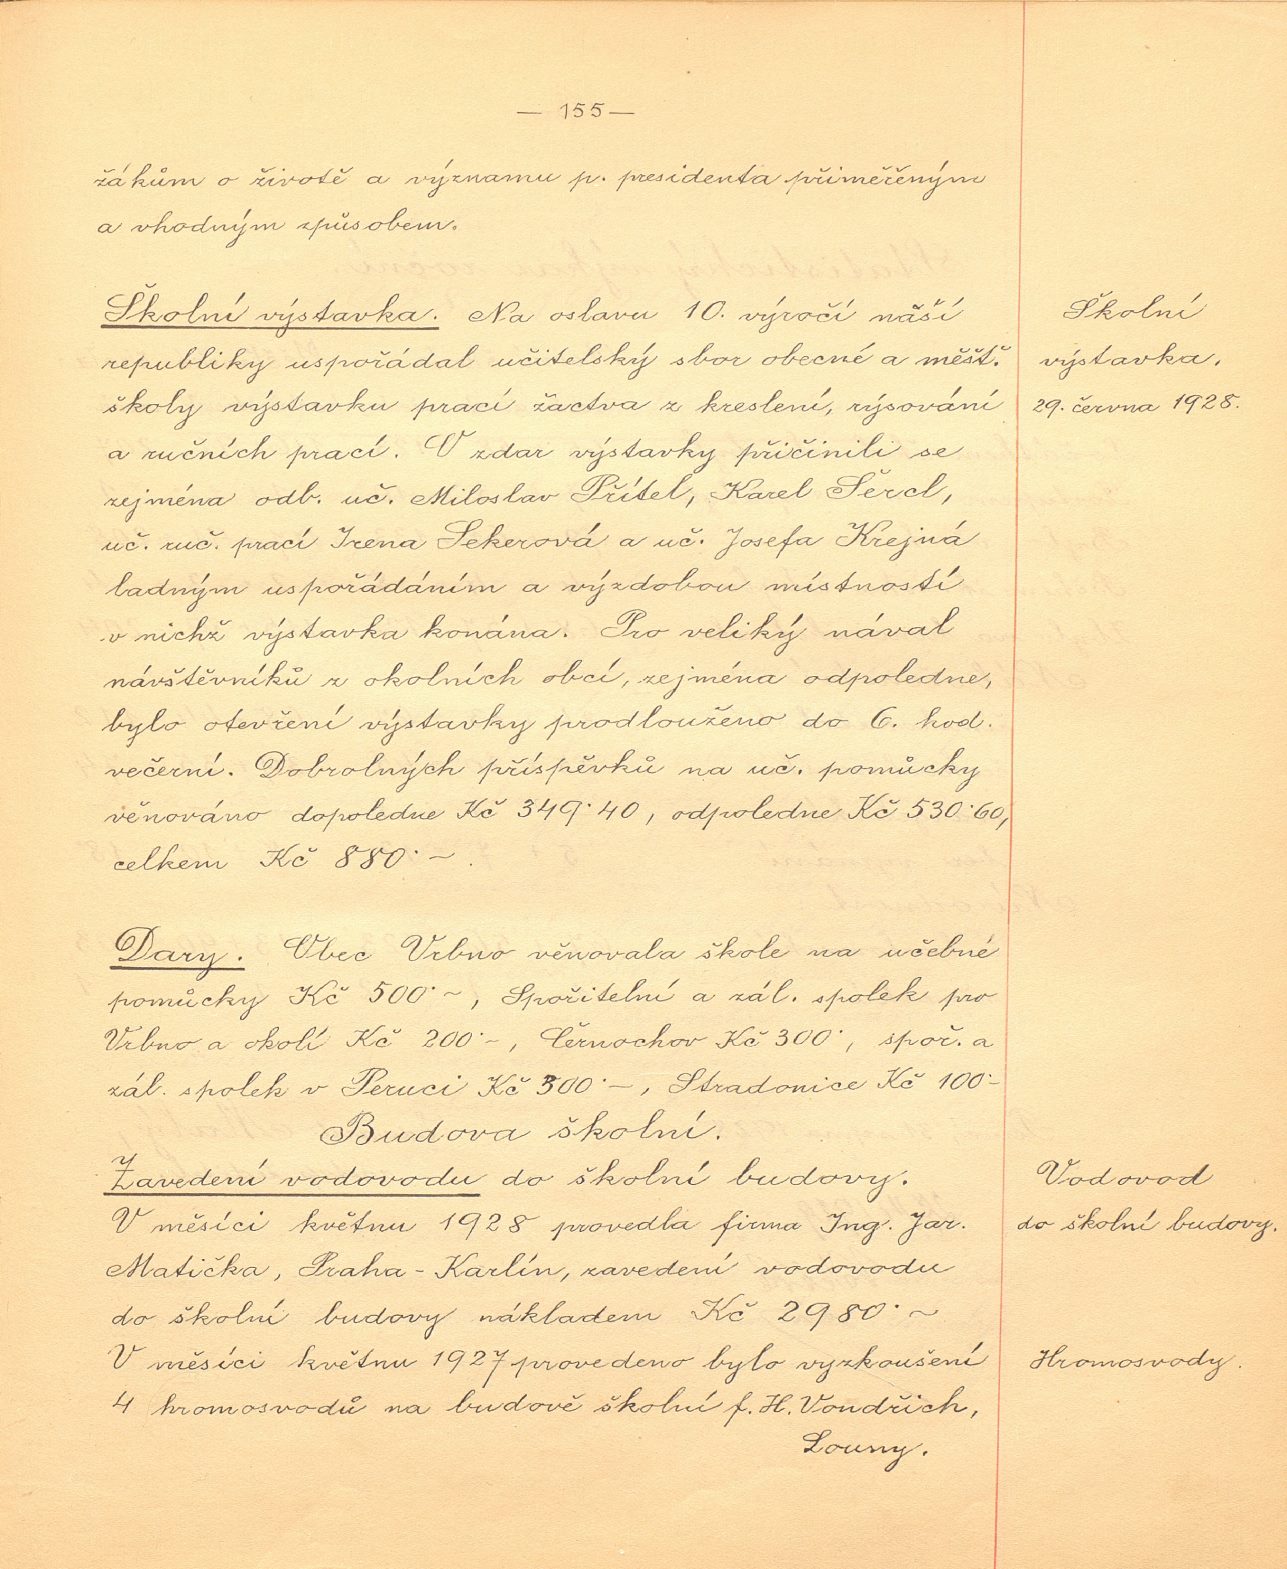 — 155 —
žákům o životě a významu p. presidenta přiměřeným
a vhodným způsobem.
Školní výstavka. Na oslavu 10. výročí náší
republiky uspořádal učitelský sbor obecné a měšť.
školy výstavku prací žactva z kreslení, rýsování
a ručních prací. V zdar výstavky přičinili se
zejména odb. uč. Miloslav Přítel, Karel Šercl,
uč. ruč. prací Irena Sekerová a uč. Josefa Krejná
ladným uspořádáním a výzdobou místností
v nichž výstavka konána. Pro veliký nával
návštěvníků z okolních obcí, zejména odpoledne,
bylo otevření výstavky prodlouženo do 6. hod.
večerní. Dobrolných příspěvků na uč. pomůcky
věnováno dopoledne Kč 349·40, odpoledne Kč 530·60,
celkem Kč 880·—.
Školní
výstavka.
29. června 1928.
Dary. Obec Vrbno věnovala škole na učebné
pomůcky Kč 500·—, Spořitelní a zál. spolek pro
Vrbno a okolí Kč 200·—, Černochov Kč 300·, spoř. a
zál. spolek v Peruci Kč 300·—, Stradonice Kč 100·—
Budova školní.
Zavedení vodovodu do školní budovy.
V měsíci květnu 1928 provedla firma Ing. Jar.
Matička, Praha - Karlín, zavedení vodovodu
do školní budovy nákladem Kč 2980·—
Vodovod
do školní budovy.
V měsíci květnu 1927 provedeno bylo vyzkoušení
4 hromosvodů na budově školní f. H. Vondřich,
Louny.
Hromosvody.